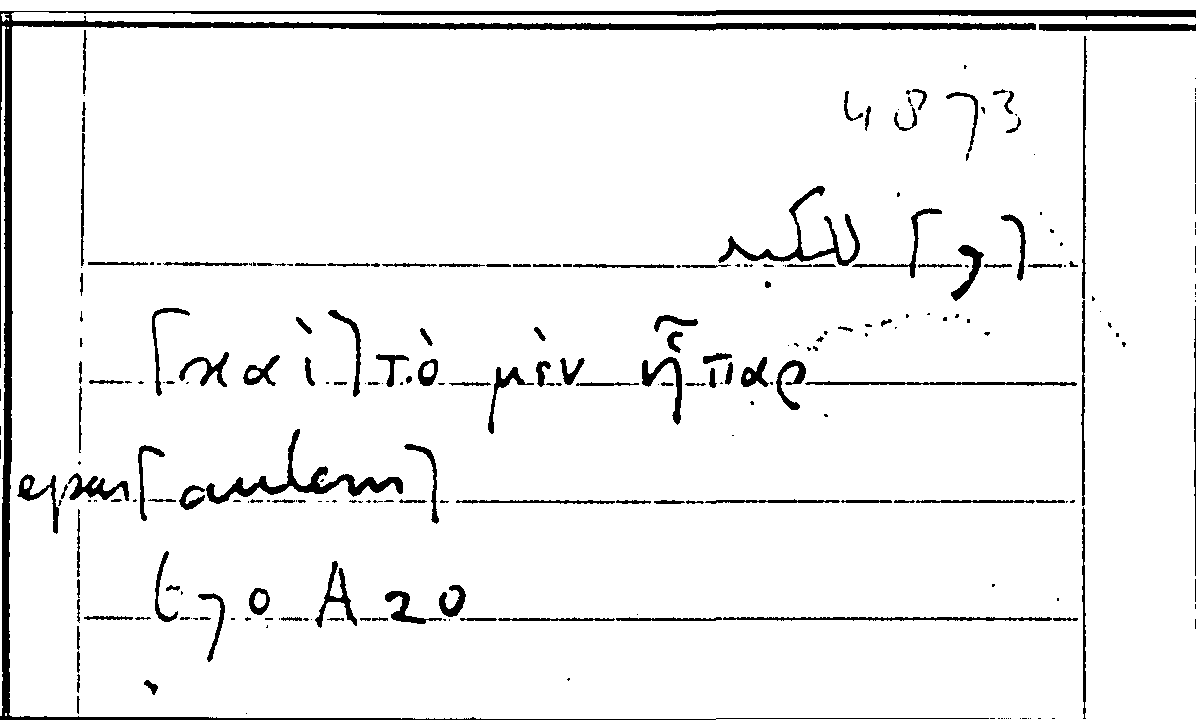 4873
[و]
[καὶ] τὸ μὲν ἧπαρ
epar [autem]
670 A 20